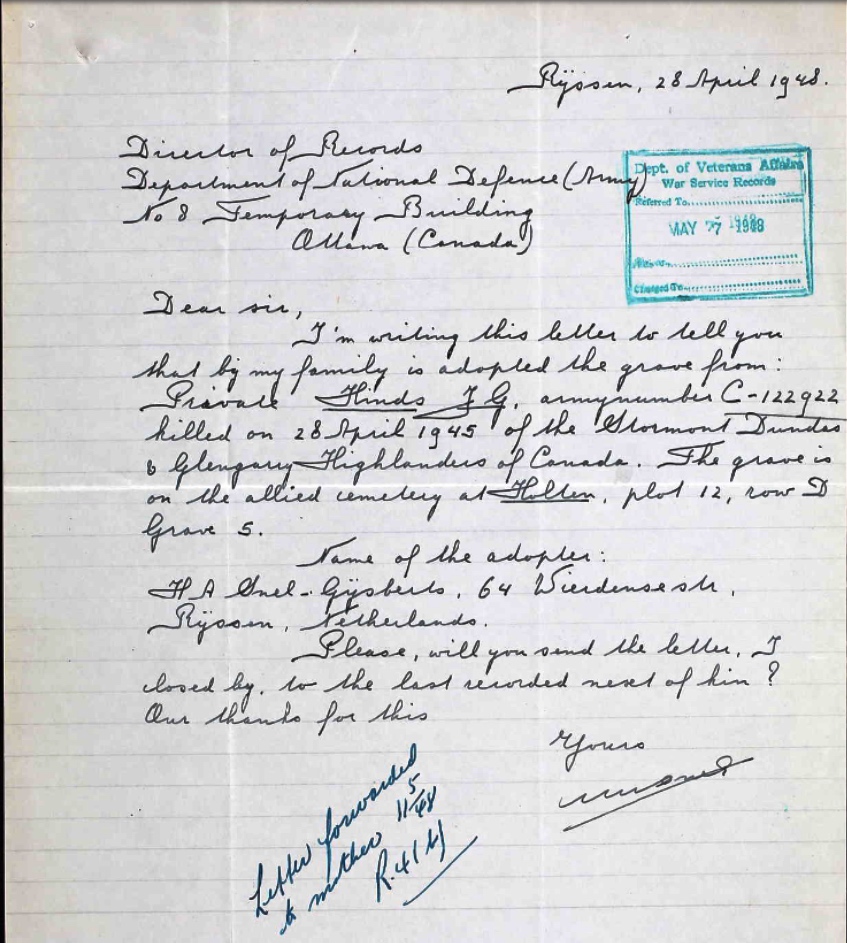 Rijssen, 28 April 1948.
Director of Records
Department of National Defence (Army)
No 8 Temporary Building
Ottawa (Canada)
Dept. of Veterans Affairs
War Service Records
Referred To
MAY 7 1948
Charged To
Dear sir,
I'm writing this letter to tell you
that by my family is adopted the grave from:
Private Hinds J G, armynumber C-122922
killed on 28 April 1945 of the Stormont Dundas
& Glengarry Highlanders of Canada. The grave is
on the allied cemetery at Holten, plot 12, row D
Grave 5.
Name of the adopter:
H A Snel-Gijsberts, 64 Wierdensestr,
Rijssen, Netherlands.
Please, will you send the letter, I
closed by, to the last recorded next of kin?
Our thanks for this
Yours
Letter forwarded
to mother 11/5/48